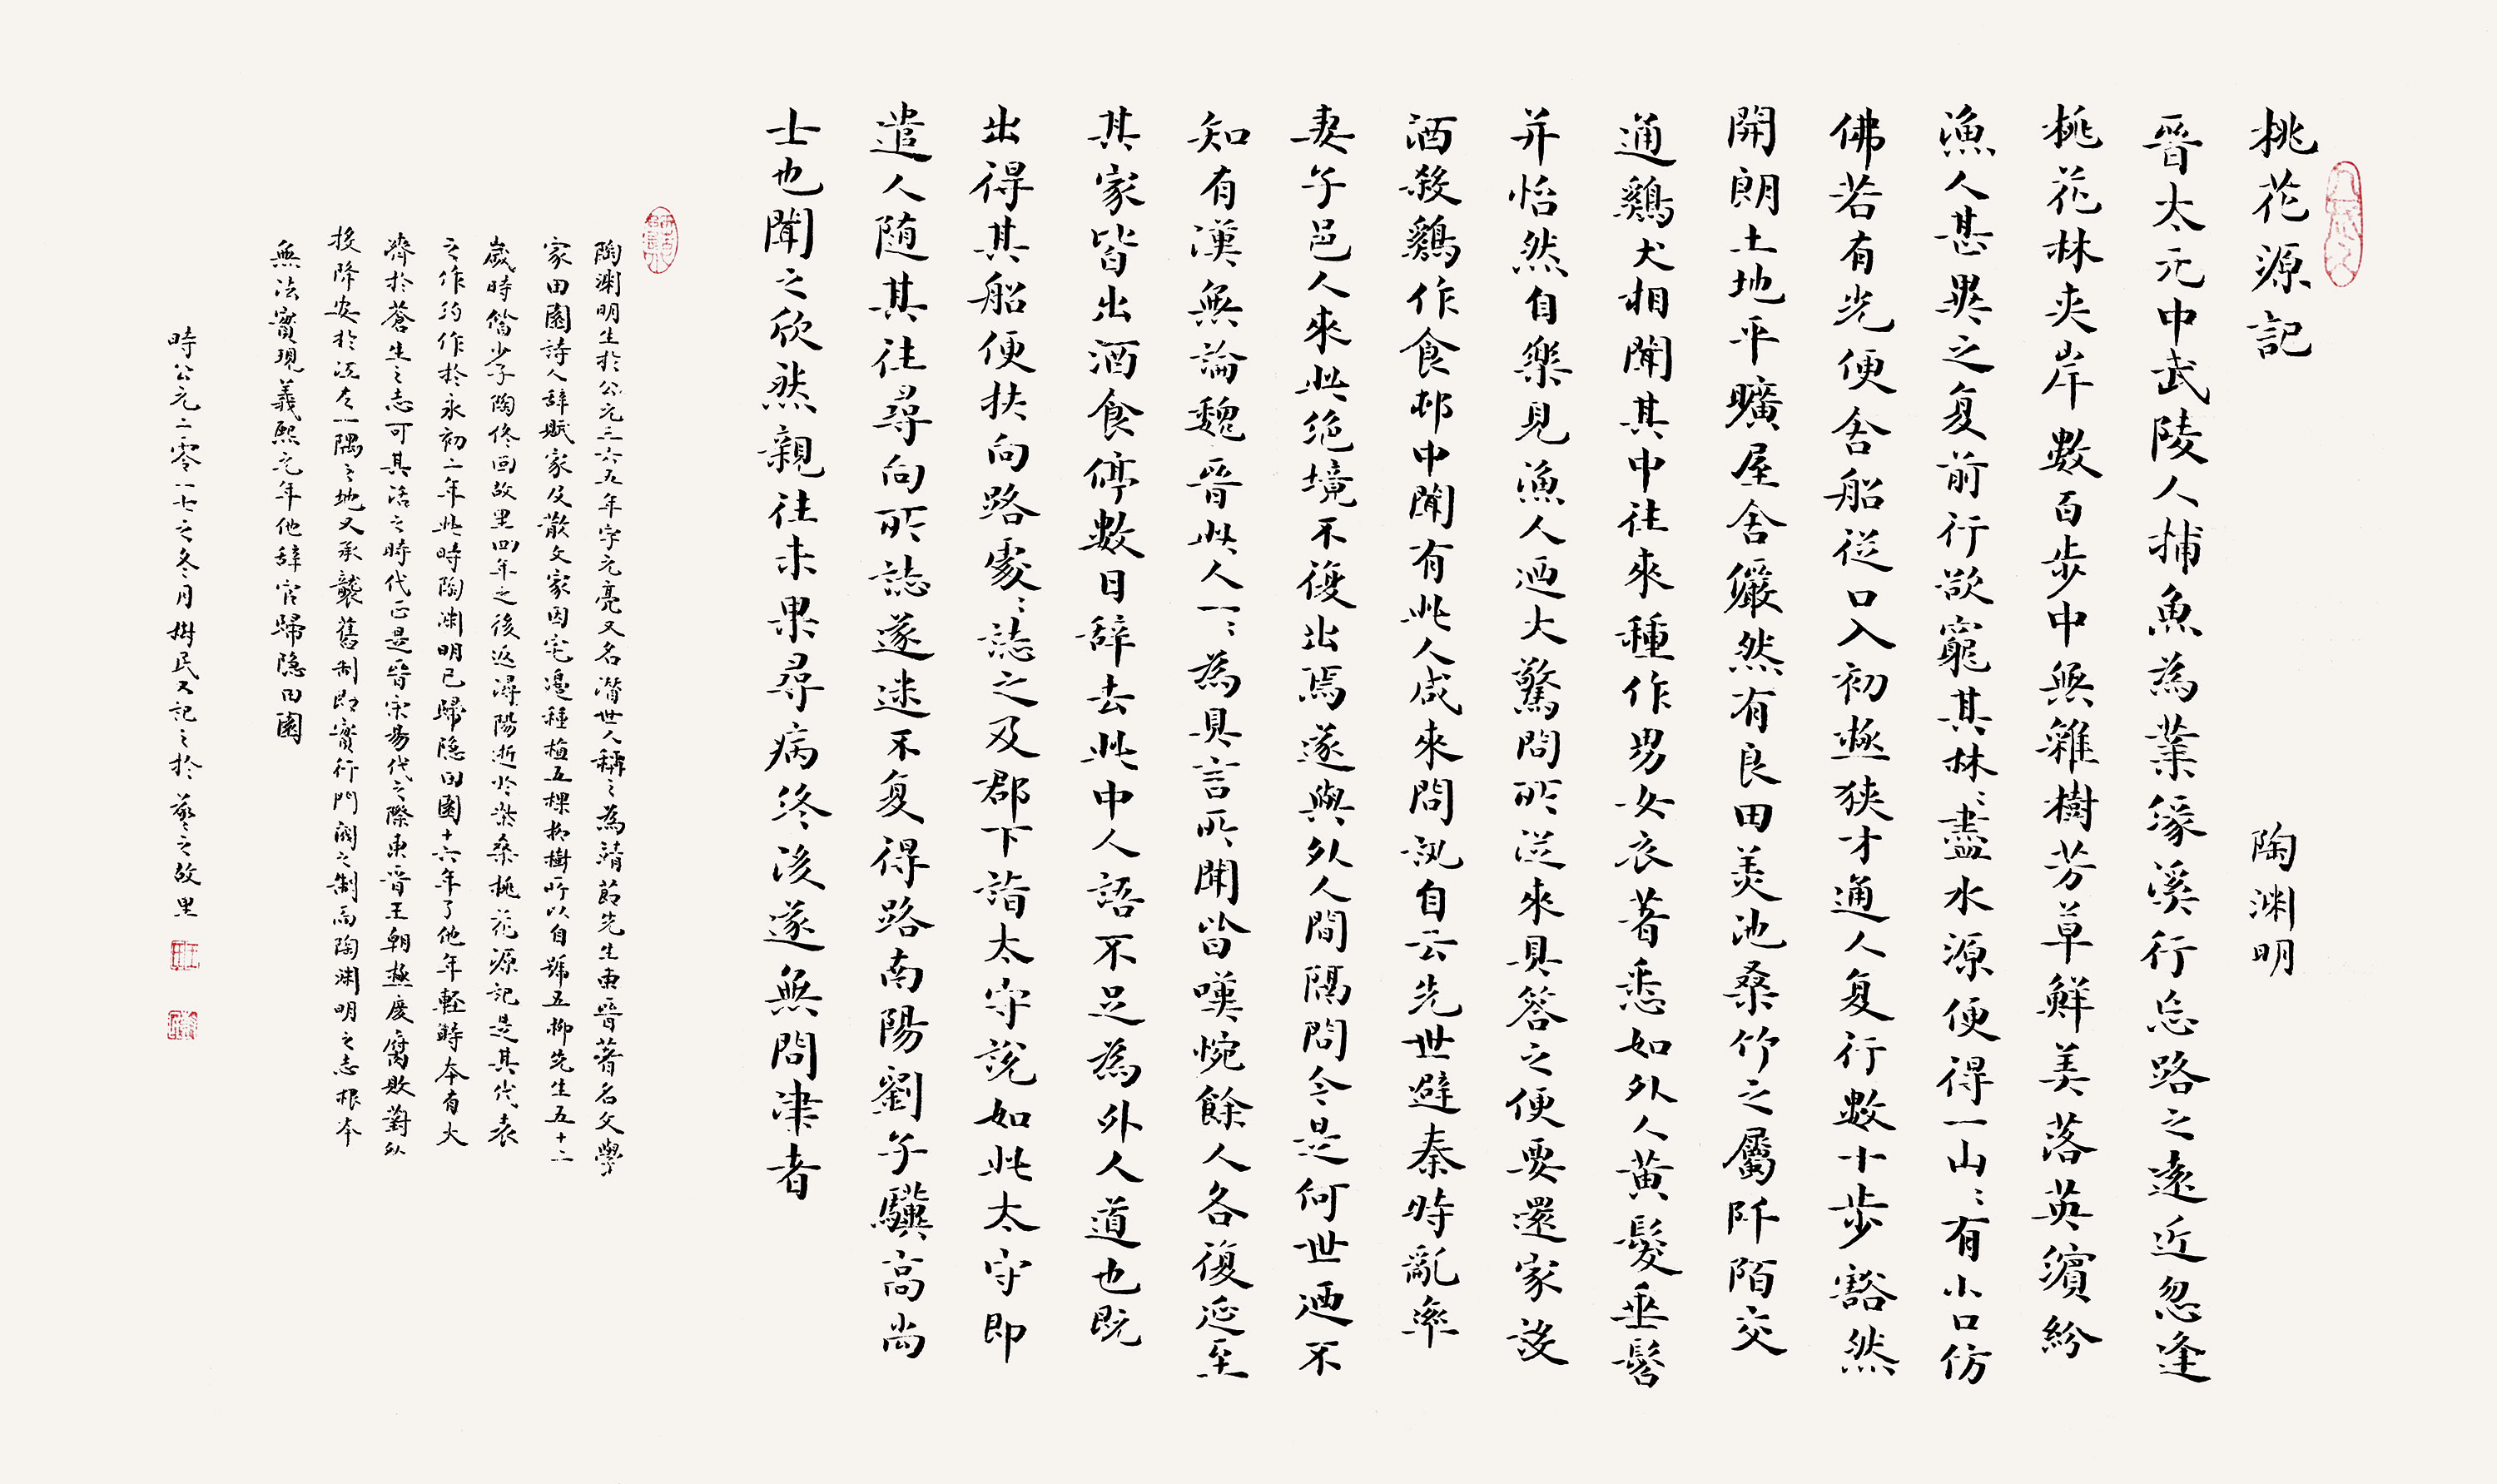 桃花源記 陶渊明
晉太元中武陵人捕魚為業緣溪行忘路之遠近忽逢
桃花林夾岸數百步中無雜樹芳草鮮美落英濱紛
漁人甚異之复前行欲窮其林〻盡水源便得一山〻有小口仿
佛若有光便舍船從口入初極狹才通人复行數十步豁然
開朗土地平曠屋舍儼然有良田美池桑竹之屬阡陌交
通鷄犬相聞其中往來種作男女衣著悉如外人黃髮垂髫
并怡然自樂見漁人迺大驚問所從來具答之便要還家設
酒殺鷄作食邨中聞有此人咸來問訊自云先世避秦時亂率
妻子邑人來此絕境不復出焉遂與外人間隔問今是何世迺不
知有漢無論魏晉此人一〻為具言所聞皆嘆惋餘人各復延至
其家皆出酒食停數日辭去此中人語不足為外人道也既
出得其船便扶向路處〻誌之及郡下詣太守說如此太守即
遣人随其往尋向所誌遂迷不复得路南陽劉子驥高尚
士也聞之欣然親往未果尋病終後遂無問津者
陶渊明生於公元三六五年字元亮又名潛世人稱之為靖節先生東晉著名文學
家田園詩人辞赋家及散文家因宅邊種植五棵柳樹所以自號五柳先生五十二
歲時偕少子陶佟回故里四年之後返潯陽逝於柴桑桃花源記是其代表
之作約作於永初二年此時陶渊明已歸隐田園十六年了他年輕時本有大
濟於蒼生之志可其活之時代正是晉宋易代之際東晉王朝極度腐敗對外
投降安於江左一隅之地又承襲舊制即實行門閥之制而陶渊明之志根本
無法實現義熙元年他辞官歸隐田園
時公元二零一七之冬月樹民又記之於 之故里